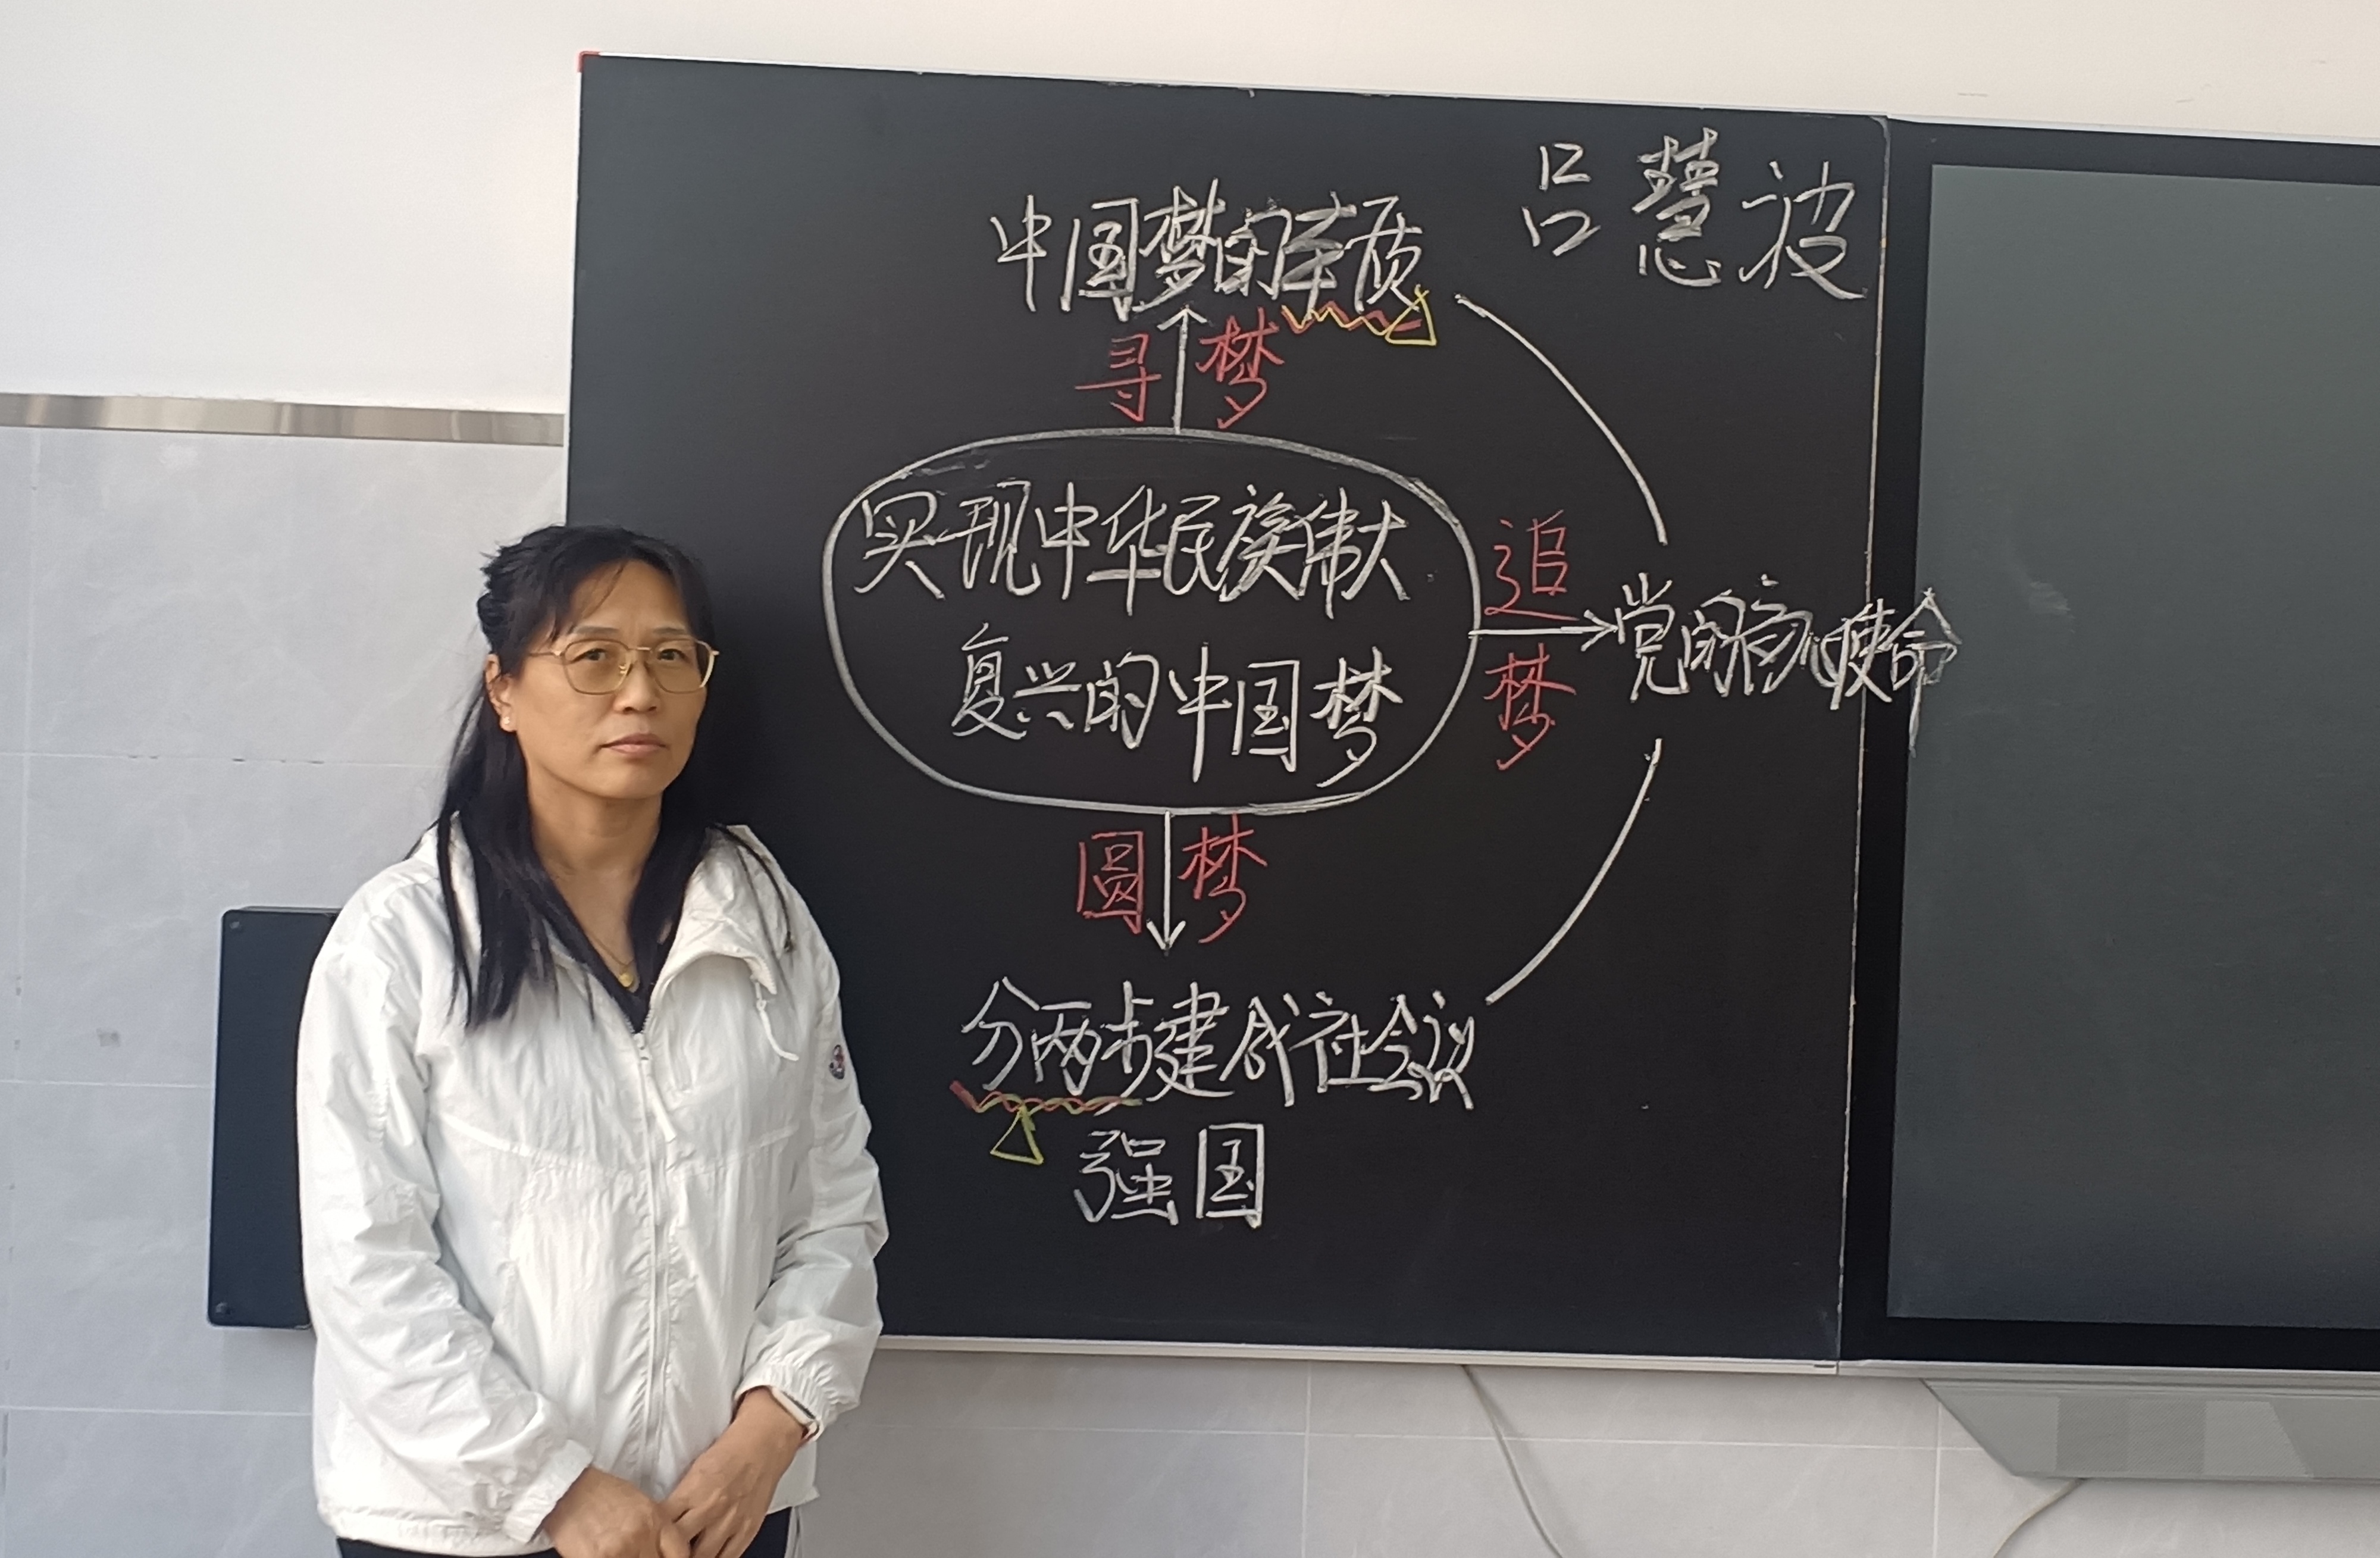 吕慧被
中国梦的本质
寻梦
实现中华民族伟大
复兴的中国梦
追梦
党的初心使命
圆梦
分两步建成社会议
强国